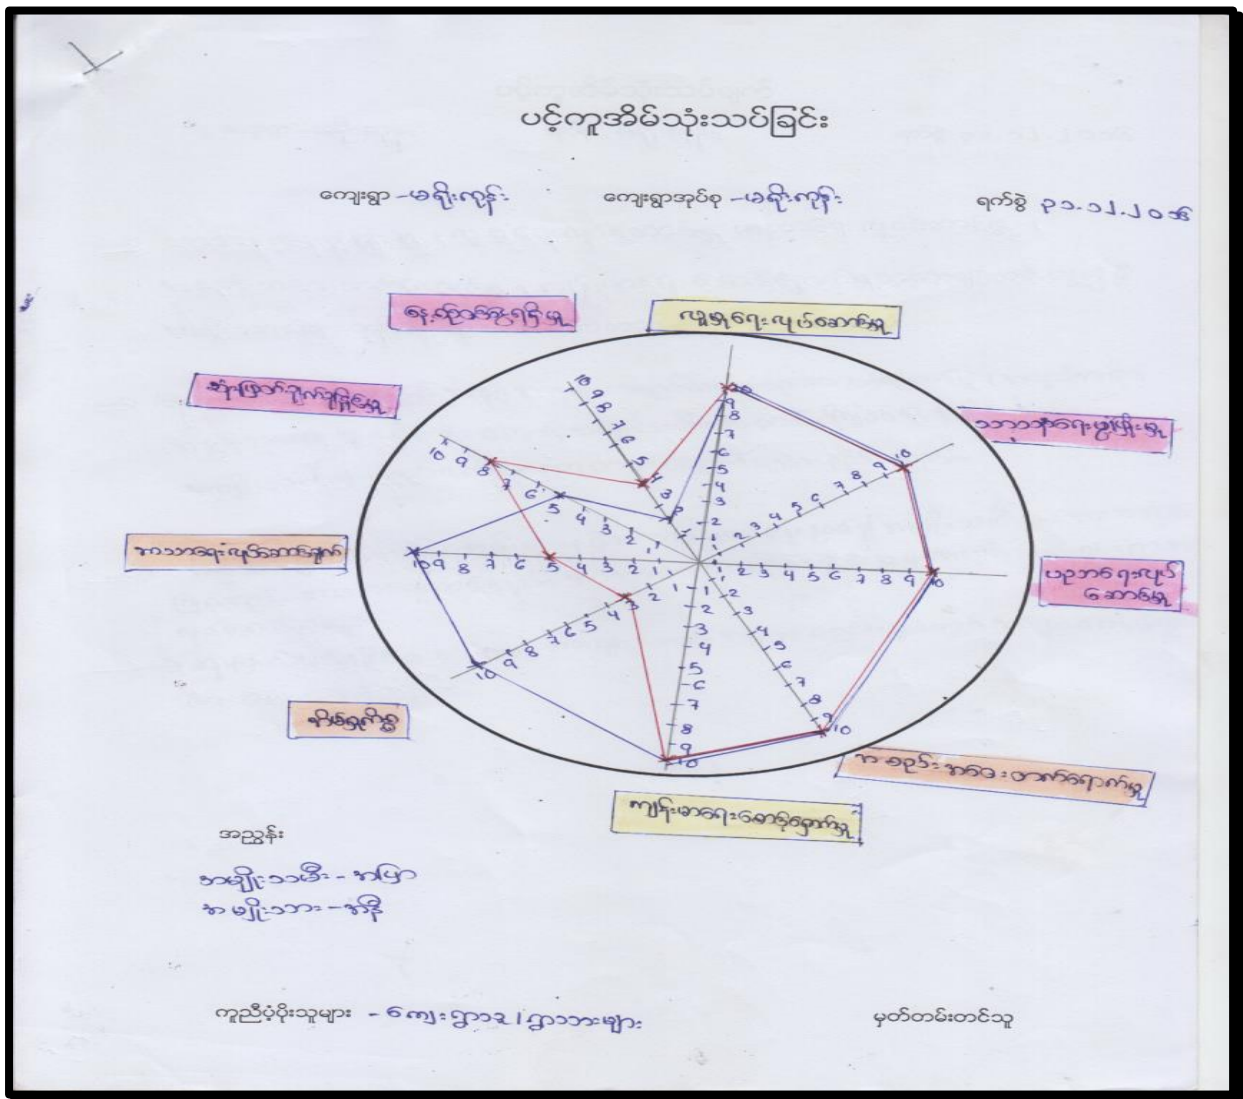 ပင့်ကူအိမ်သုံးသပ်ခြင်း
ကျေးရွာ - မရိုးကုန်း ကျေးရွာအုပ်စု - မရိုးကုန်း ရက်စွဲ ၃၁.၁၂.၂၀၁၆
နေ့တွက်ခရရှိမှု
လူမှုရေးလုပ်ဆောင်မှု
ဆုံးဖြတ်ချက်ချနိုင်မှု
ဘာသာရေးဖွံ့ဖြိုးမှု
ဘာသာရေးလုပ်ဆောင်ချက်
ပညာရေးလုပ်
ဆောင်မှု
အိမ်မှုကိစ္စ
အစည်းအဝေးတက်ရောက်မှု
ကျန်းမာရေးစောင့်ရှောက်မှု
10 9 8 7 6 5 4 3 2 1
1 2 3 4 5 6 7 8 9 10
အညွှန်း
အမျိုးသမီး - အပြာ
အမျိုးသား - အနီ
ကူညီပံ့ပိုးသူများ - ကျေးရွာသူ/ရွာသားများ မှတ်တမ်းတင်သူ